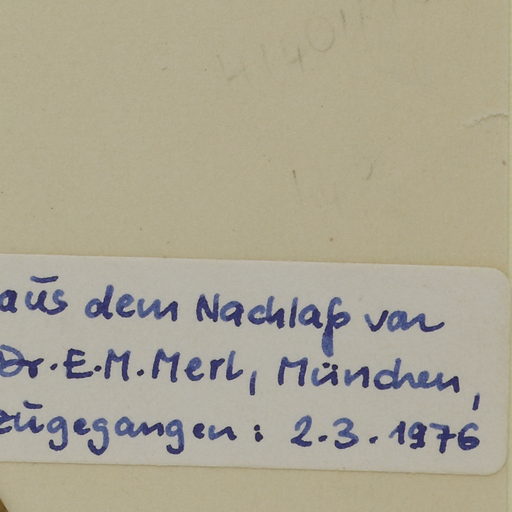 aus dem Nachlaß von
Dr. E. M. Merl, München,
zugegangen: 2.3.1976